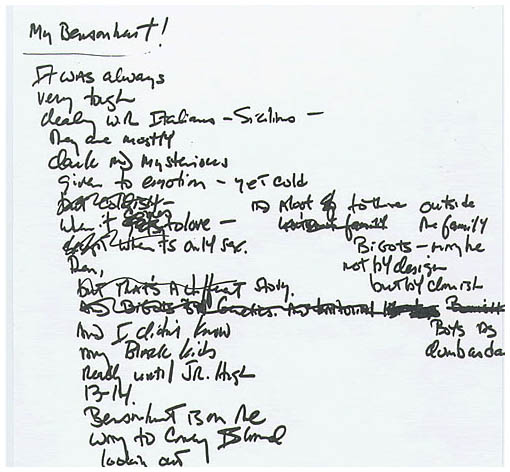 My Bensonhurst!
It was always
very tough
dealing with Italians - Sicilians -
They are mostly
dark and mysterious
given to emotion - yet cold
when it comes to love -
when its only sex.
Then,
But That's A different story.
And Bigots
And I didn't know
any Black kids
Really until JR. High
13-14.
Bensonhurst is on the
way to Coney Island
lookin out
to those outside
the family
Bigots - maybe
not by design
but by clanish
Boys